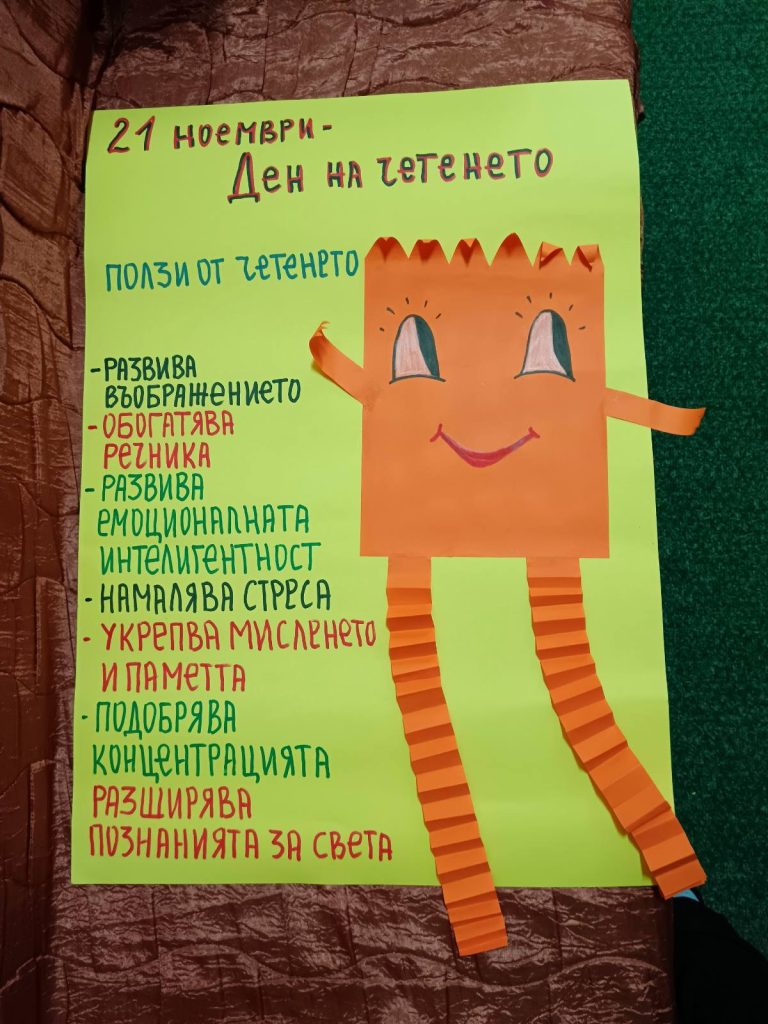 21 НОЕМВРИ-
ДЕН НА ЧЕТЕНЕТО
ПОЛЗИ ОТ ЧЕТЕНЕТО
-РАЗВИВА
ВЪОБРАЖЕНИЕТО
-ОБОГАТЯВА
РЕЧНИКА
-РАЗВИВА
ЕМОЦИОНАЛНАТА
ИНТЕЛИГЕНТНОСТ
-НАМАЛЯВА СТРЕСА
-УКРЕПВА МИСЛЕНЕТО
И ПАМЕТТА
-ПОДОБРЯВА
КОНЦЕНТРАЦИЯТА
РАЗШИРЯВА
ПОЗНАНИЯТА ЗА СВЕТА